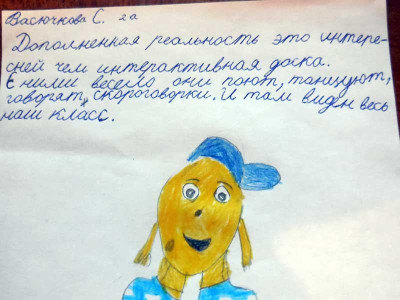 Васючкова С. 2а
Дополненная реальность это интере-
сней чем интерактивная доска.
С ними весело они поют, танцуют,
говорят, скороговорки. И там виден весь
наш класс.